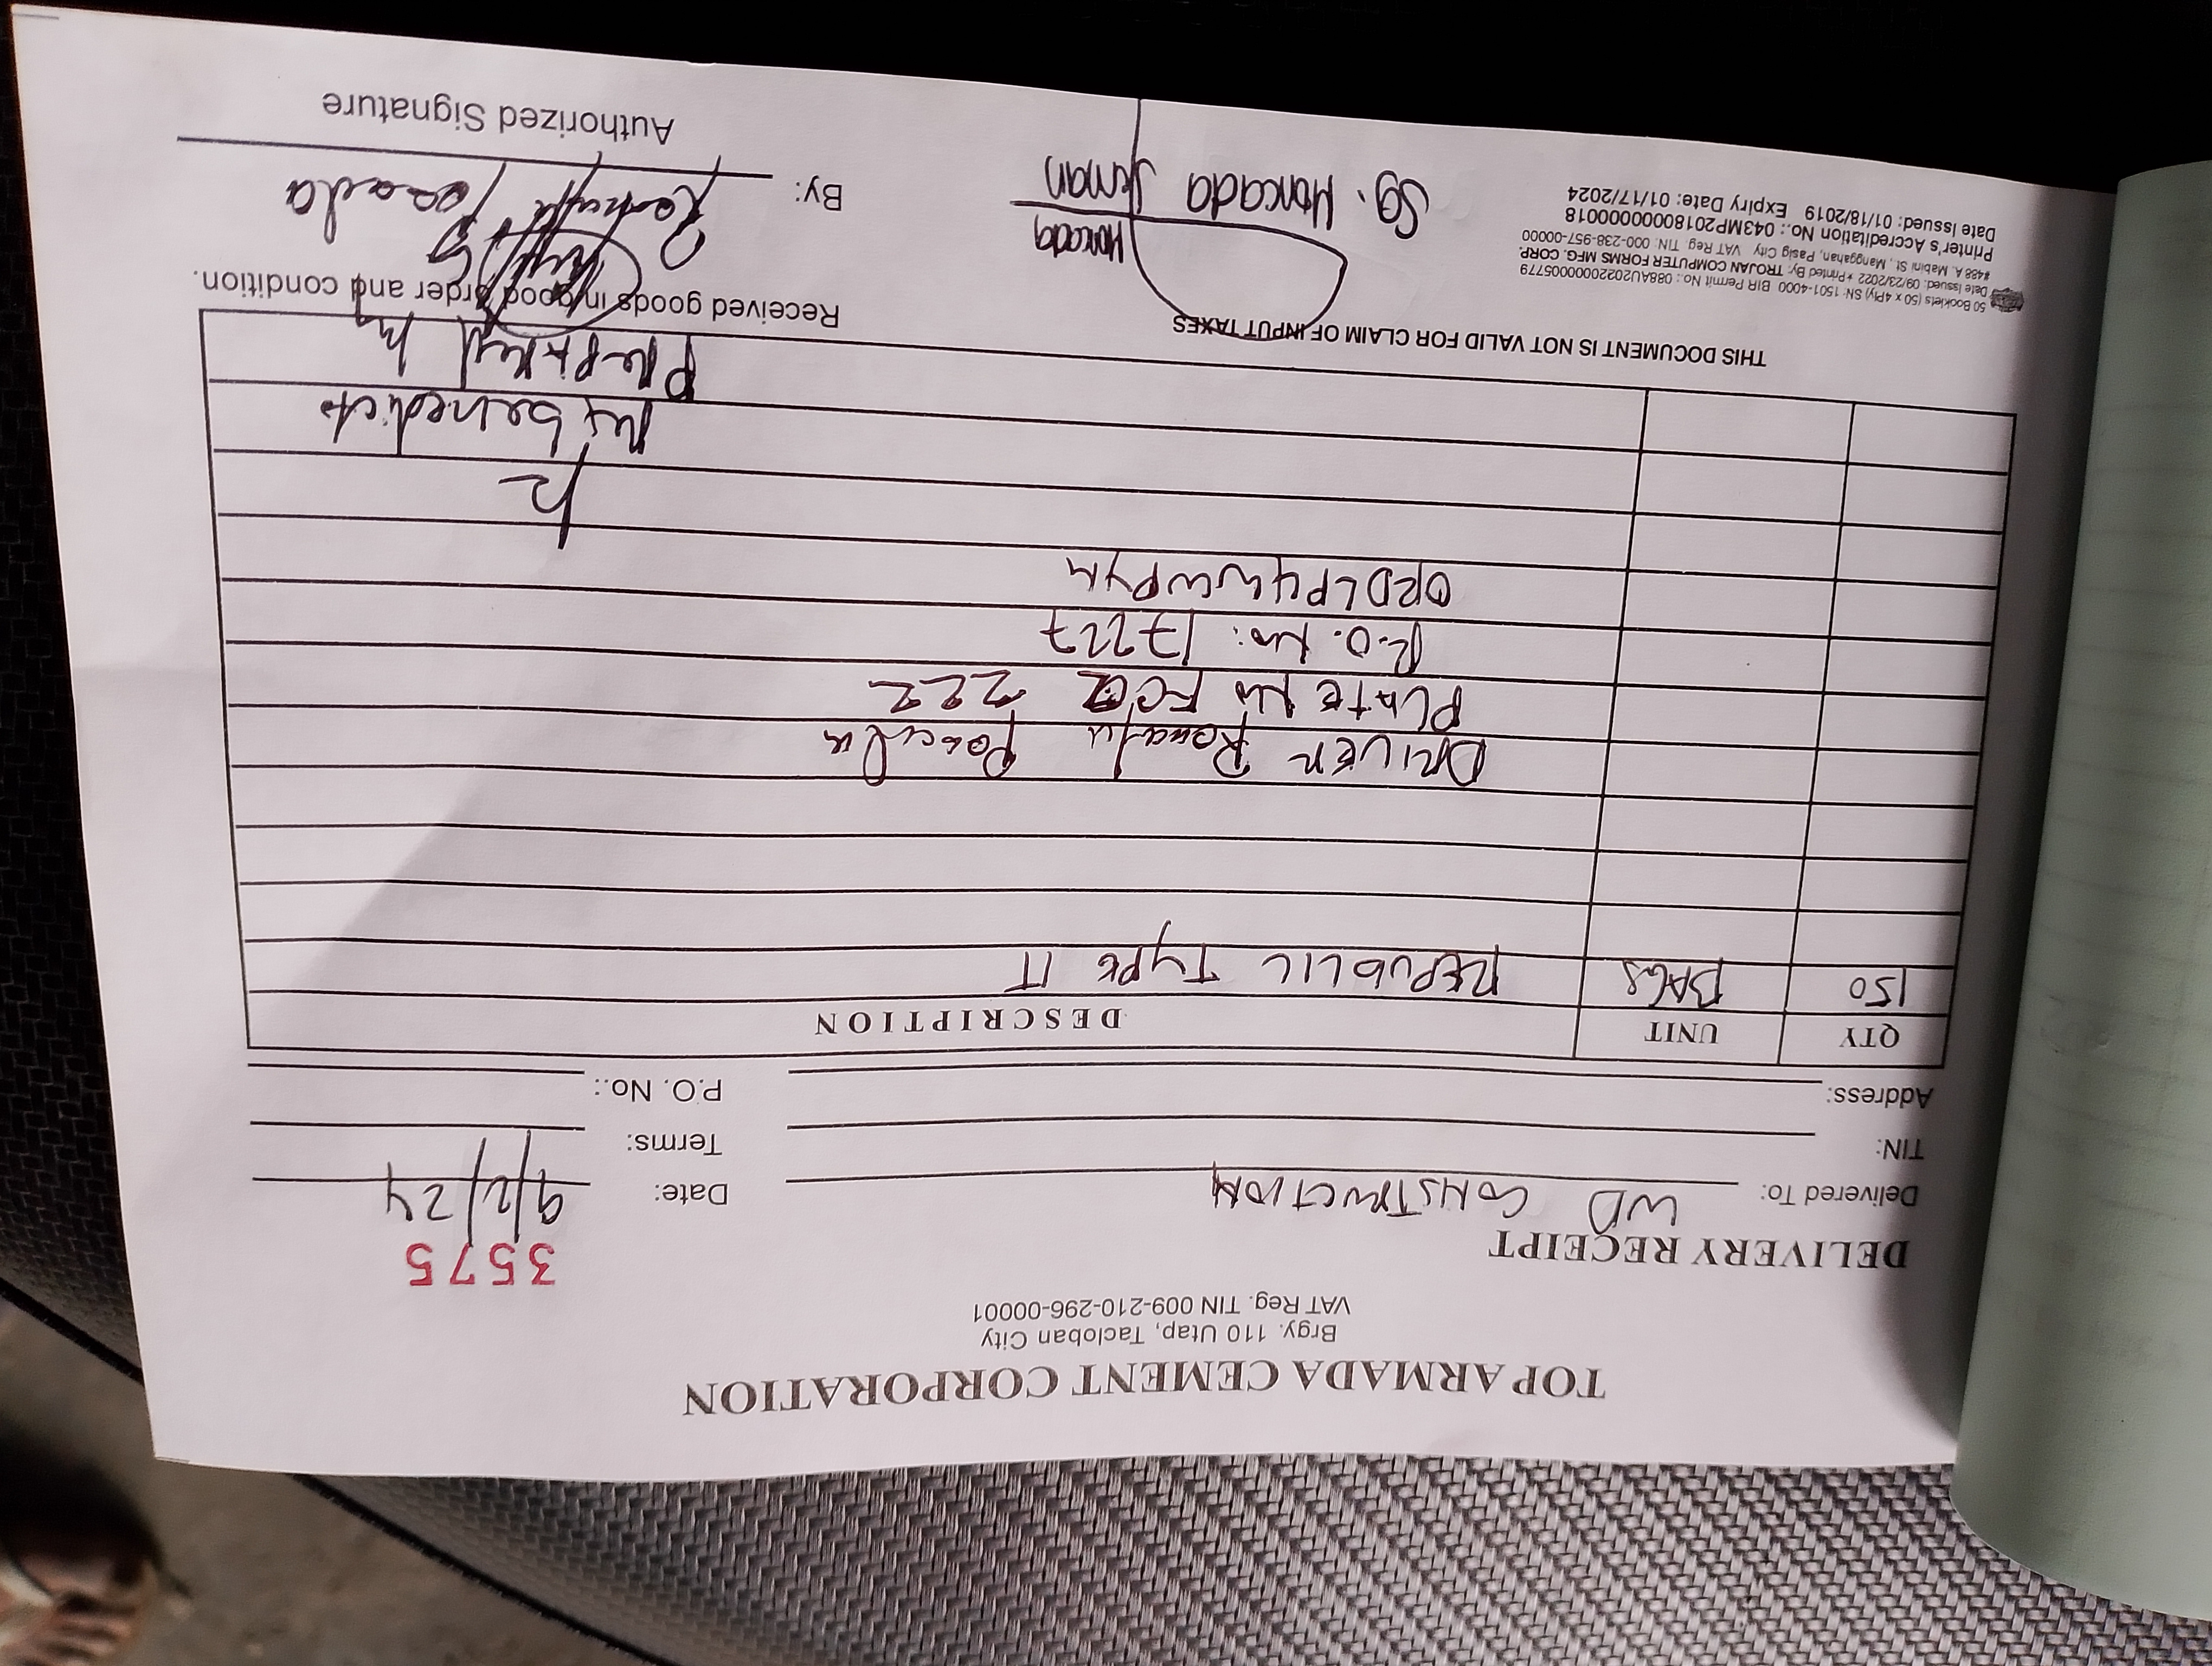 TOP ARMADA CEMENT CORPORATION
Brgy. 110 Utap, Tacloban City
VAT Reg. TIN 009-210-296-00001
DELIVERY RECEIPT
3575
Delivered To: WD CONSTRUCTION
Date: 9/2/24
TIN:
Terms:
Address:
P.O. No.:
QTY UNIT DESCRIPTION
150 BAGS REPUBLIC TYPE 1T
DRIVER
PLATE No 222
R.O. No: 17227
ORDLPYWWPYM
benedicto
Prepared by
THIS DOCUMENT IS NOT VALID FOR CLAIM OF INPUT TAXES
Received goods in good order and condition.
50 Booklets (50 x 4Ply) SN: 1501-4000 BIR Permit No.: 088AU20220000005779
Date Issued: 09/23/2022 • Printed By: TROJAN COMPUTER FORMS MFG. CORP.
#488 A. Mabini St., Manggahan, Pasig City VAT Reg. TIN: 000-238-957-00000
Printer's Accreditation No.: 043MP20180000000018
Date Issued: 01/18/2019 Expiry Date: 01/17/2024
Moncada
SG. Moncada Jeman
By:
Authorized Signature